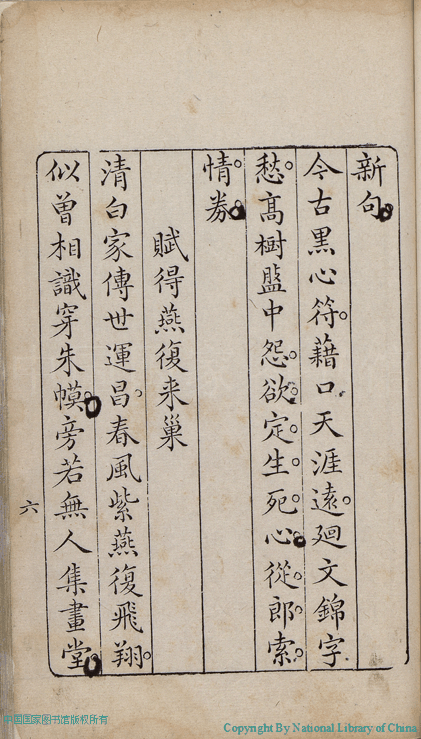 新句
今古黑心符藉口天涯遠廻文錦字
愁高樹盤中怨欲定生死心從郎索
情券
賦得燕復来巢
清白家傳世運昌春風紫燕復飛翔
似曾相識穿朱幙旁若無人集畫堂
六
中国国家图书馆版权所有
Copyright By National Library of China